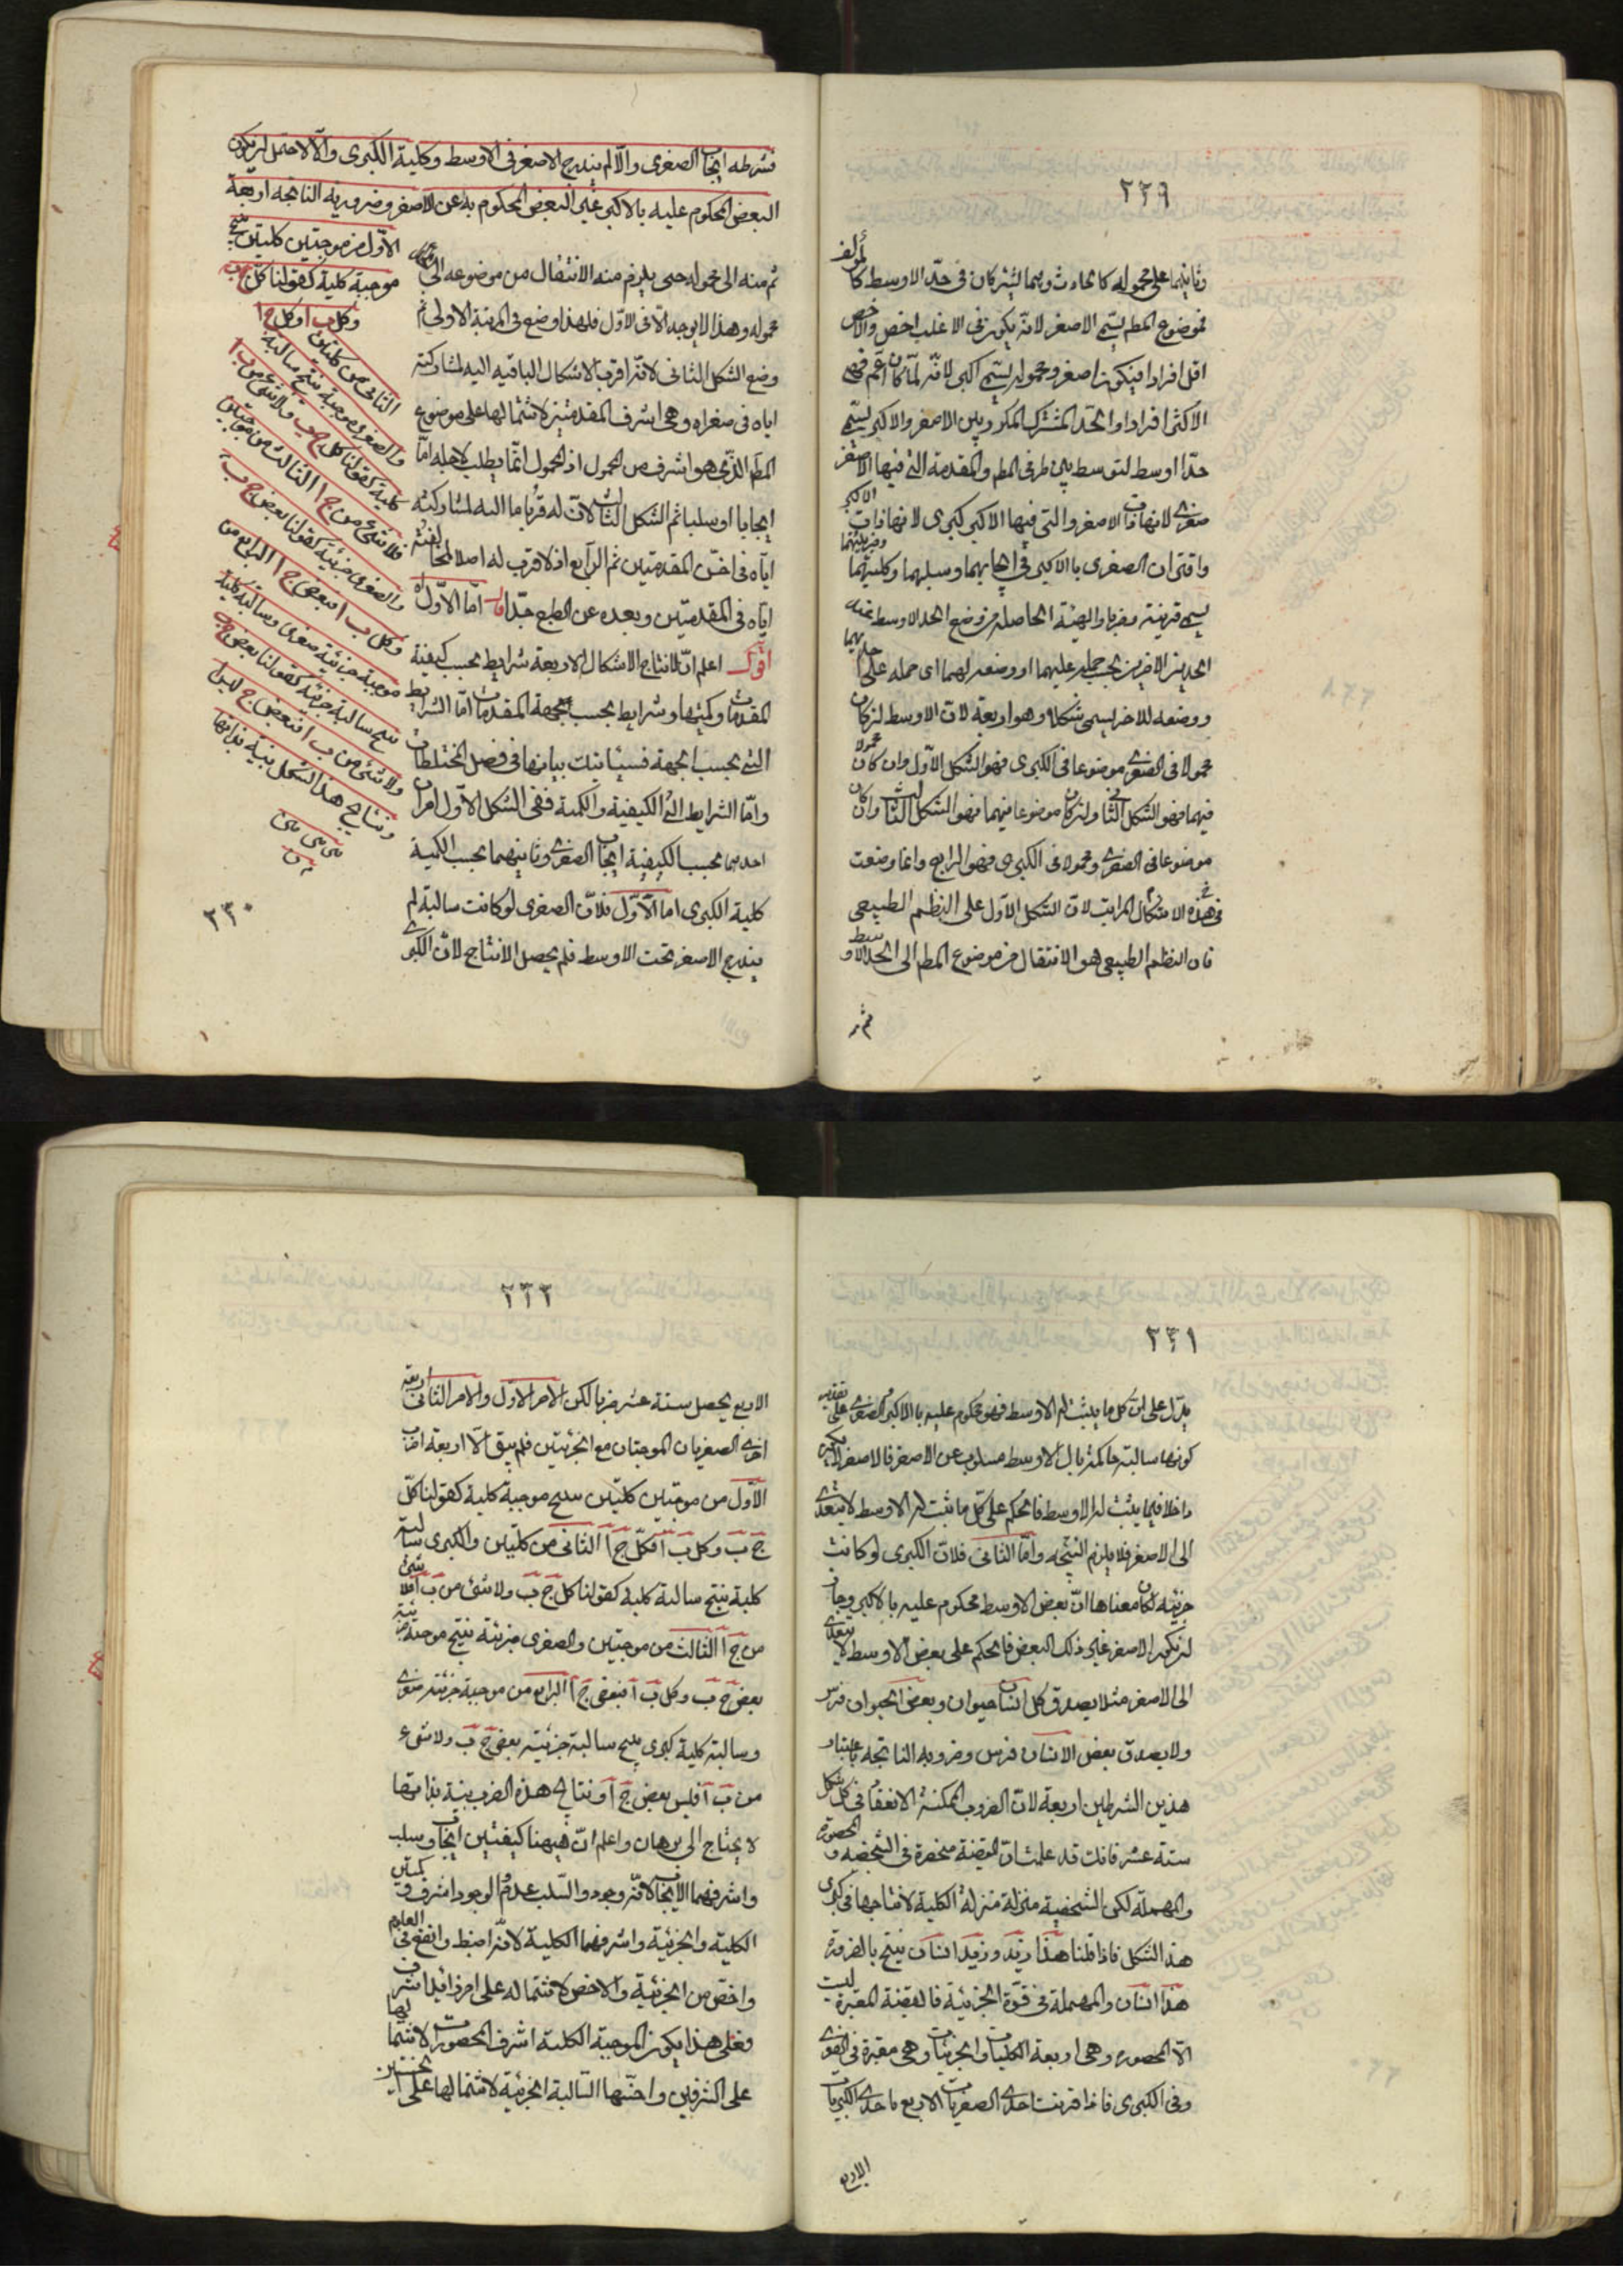 ٢٢٩
وثانيهما على محموله كالحادث وهما يشتركان في حد الاوسط كالمؤلف
فموضوع المط يسمى الاصغر لانه يكون في الاغلب اخص والاخص
اقل افرادا فيكون اصغر ومحموله يسمى اكبر لانه لما كان اعم فهو
الاكثر افرادا والحد المشترك المكرر بين الاصغر والاكبر يسمى
حدا اوسط لتوسطه بين طرفي المط والمقدمة التي فيها الاصغر
صغرى لانها ذات الاصغر والتي فيها الاكبر كبرى لانها ذات الاكبر
واقتران الصغرى بالكبرى في ايجابهما وسلبهما وكليتهما وجزئيتهما
يسمى قرينة وضربا والهيئة الحاصلة من وضع الحد الاوسط عند
الحدين الاخيرين بحسب حمله عليهما او وضعه لهما اى حمله على احدهما
ووضعه للاخر يسمى شكلا وهو اربعة لان الاوسط ان كان
محمولا في الصغرى موضوعا في الكبرى فهو الشكل الاول وان كان محمولا
فيهما فهو الشكل الثانى وان كان موضوعا فيهما فهو الشكل الثالث وان كان
موضوعا في الصغرى ومحمولا في الكبرى فهو الرابع وانما وضعت
في هذه الاشكال المراتب لان الشكل الاول على النظم الطبيعى
فان النظم الطبيعى هو الانتقال من موضوع المط الى الحد الاوسط
ثم
فشرطه ايجاب الصغرى والا لم يندرج الاصغر في الاوسط وكلية الكبرى والا لاحتمل ان يكون
البعض المحكوم عليه بالاكبر غير البعض المحكوم به عن الاصغر وضروبه الناتجة اربعة
الاول من موجبتين كليتين ينتج
موجبة كلية كقولنا كل ج ب
وكل ب ا فكل ج ا
الثانى من كليتين
والصغرى موجبة ينتج سالبة
كلية كقولنا كل ج ب ولا شئ من ب ا
فلا شئ من ج ا الثالث من موجبتين
والصغرى جزئية كقولنا بعض ج ب
وكل ب ا فبعض ج ا الرابع من
موجبة جزئية صغرى وسالبة كلية
ينتج سالبة جزئية كقولنا بعض ج ب
ولا شئ من ب ا فبعض ج ليس ا
ونتايج هذا الشكل بينة بذاتها
ثم منه الى محموله حتى يلزم منه الانتقال من موضوعه الى
محموله وهذا لا يوجد الا في الاول فلهذا وضع في المرتبة الاولى ثم
وضع الشكل الثانى لانه اقرب الاشكال الباقية اليه لمشاركته
اياه في صغراه وهي اشرف المقدمتين لاشتمالها على موضوع
المط الذى هو اشرف من المحمول اذ المحمول انما يطلب لاجله اما
ايجابا او سلبا ثم الشكل الثالث لان له قربا ما اليه لمشاركته
اياه في اخس المقدمتين ثم الرابع اذ لا قرب له اصلا لمخالفته
اياه في المقدمتين وبعده عن الطبع جدا قال اما الاول
اقول اعلم ان لانتاج الاشكال الاربعة شرايط بحسب كيفية
المقدمات وكميتها وشرايط بحسب جهة المقدمات اما الشرايط
التي بحسب الجهة فسياتيك بيانها في فصل المختلطات
واما الشرايط التي الكيفية والكمية ففي الشكل الاول امران
احدهما بحسب الكيفية ايجاب الصغرى وثانيهما بحسب الكمية
كلية الكبرى اما الاول فلان الصغرى لو كانت سالبة لم
يندرج الاصغر تحت الاوسط فلم يحصل الانتاج لان الكبرى
٢٣٠
٢٣١
يدل على ان كل ما يثبت له الاوسط فهو محكوم عليه بالاكبر والصغرى على تقدير
كونها سالبة حاكمة بان الاوسط مسلوب عن الاصغر فالاصغر لا يكون
داخلا فيما يثبت له الاوسط فالحكم على كل ما ثبت له الاوسط لا يتعدى
الى الاصغر فلا يلزم النتيجة واما الثانى فلان الكبرى لو كانت
جزئية لكان معناها ان بعض الاوسط محكوم عليه بالاكبر وجاز
ان يكون الاصغر غير ذلك البعض فالحكم على بعض الاوسط لا يتعدى
الى الاصغر مثلا يصدق كل انسان حيوان وبعض الحيوان فرس
ولا يصدق بعض الانسان فرس وضروبه الناتجة باعتبار
هذين الشرطين اربعة لان الضروب الممكنة الانعقاد في كل شكل
ستة عشر فانك قد علمت ان القضية منحصرة في الشخصية والمحصورة
والمهملة لكن الشخصية منزلة منزلة الكلية لانتاجها في كبرى
هذا الشكل فاذا قلنا هذا زيد وزيد انسان ينتج بالضرورة
هذا انسان والمهملة في قوة الجزئية فالقضية المعتبرة ليست
الا المحصورة وهي اربعة الكليات والجزئيات وهي معتبرة في الصغرى
وفي الكبرى فاذا قرنت احدى الصغريات الاربع باحدى الكبريات
الاربع
٢٣٢
الاربع يحصل ستة عشر ضربا لكن الامر الاول والامر الثانى
اخرى الصغريان الموجبتان مع الجزئيتين فلم يبق الا اربعة اضرب
الاول من موجبتين كليتين ينتج موجبة كلية كقولنا كل
ج ب وكل ب ا فكل ج ا الثانى من كليتين والكبرى سالبة
كلية ينتج سالبة كلية كقولنا كل ج ب ولا شئ من ب ا فلا شئ
من ج ا الثالث من موجبتين والصغرى جزئية ينتج موجبة جزئية
بعض ج ب وكل ب ا فبعض ج ا الرابع من موجبة جزئية صغرى
وسالبة كلية كبرى ينتج سالبة جزئية بعض ج ب ولا شئ
من ب ا فليس بعض ج ا ونتايج هذه الضرب بينة بذاتها
لا يحتاج الى برهان واعلم ان هيهنا كيفيتين ايجاب وسلب
واشرفهما الايجاب لانه وجود والسلب عدم والوجود اشرف وكميتين
الكلية والجزئية واشرفهما الكلية لانه اضبط وانفع في العلوم
واخص من الجزئية والاخص لاشتماله على امر زايد اشرف
فعلى هذا يكون الموجبة الكلية اشرف المحصورات لاشتمالها
على الشرفين واخسها السالبة الجزئية لاشتمالها على الخستين